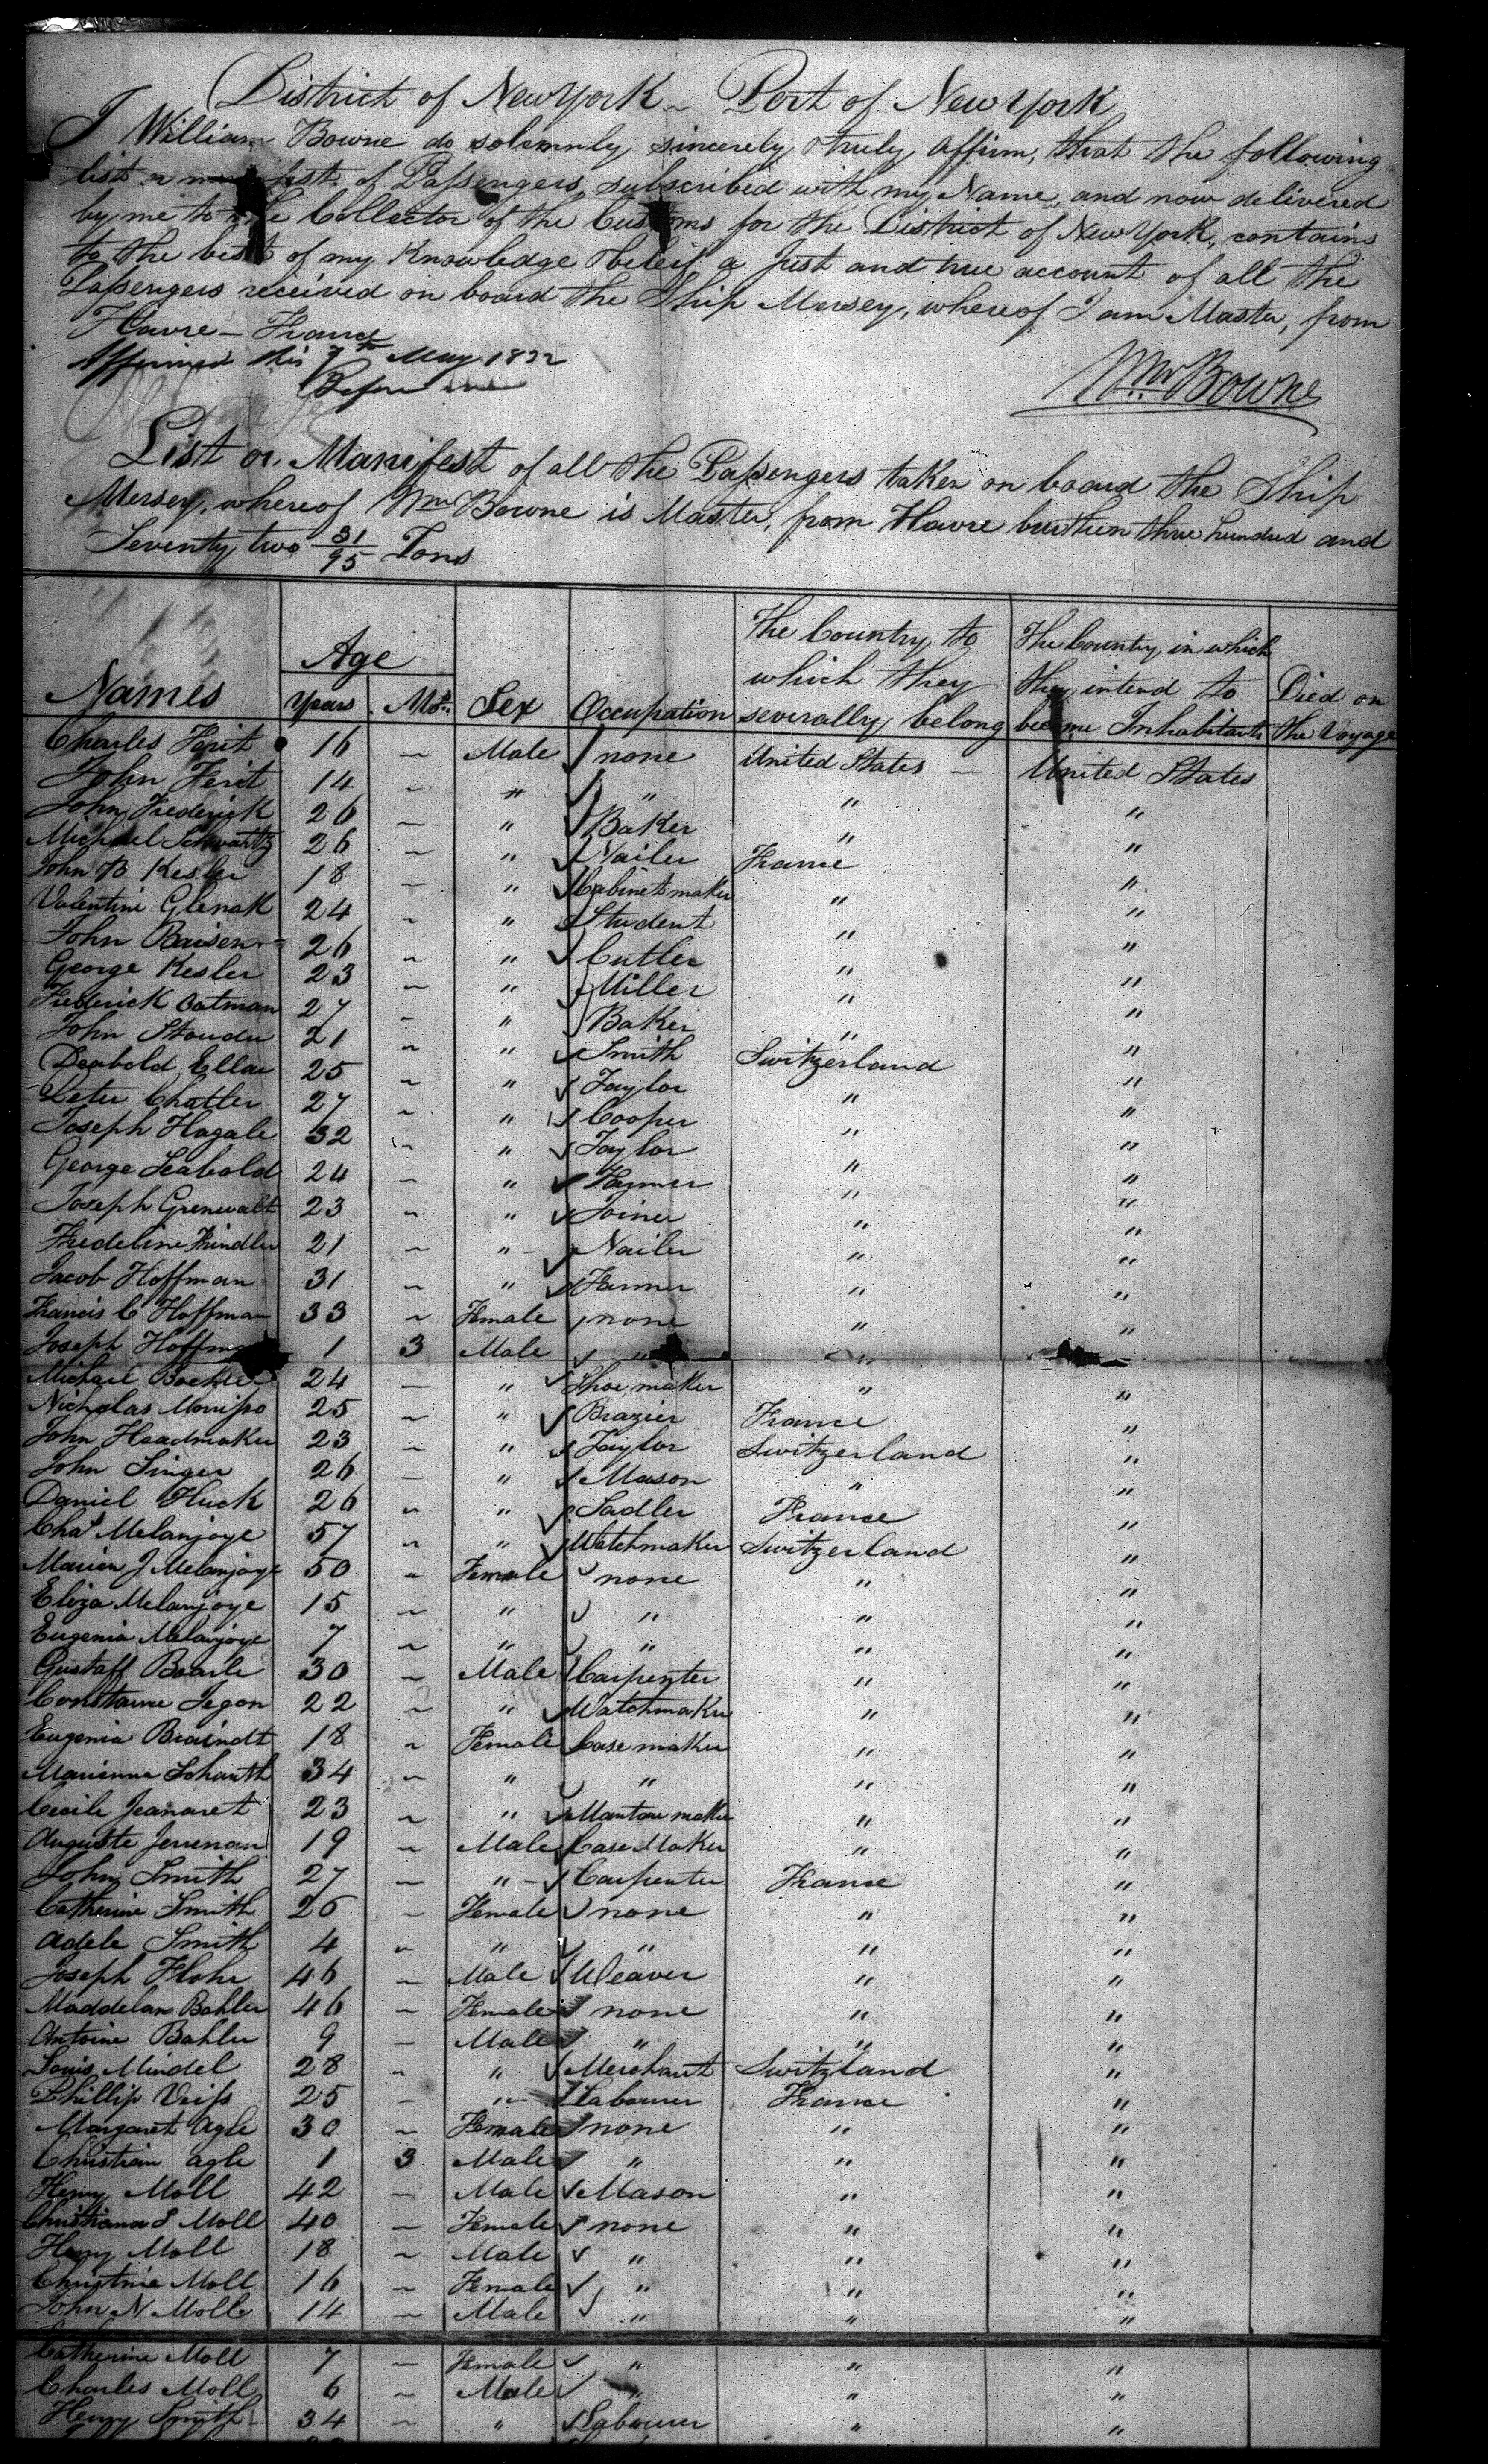 District of New York ~ Port of New York
I William Bowne do solemnly, sincerely & truly affirm, that the following
list or manifest of Passengers subscribed with my Name, and now delivered
by me to the Collector of the Customs for the District of New York, contains
to the best of my Knowledge & beleif a just and true account of all the
Passengers received on board the Ship Mersey, whereof I am Master, from
Havre — France
Affirmed this 7th May 1832
Before
Wm. Bowne
List or Manifest of all the Passengers taken on board the Ship
Mersey, whereof Wm Bowne is Master, from Havre burthen three hundred and
Seventy two 31/95 Tons
Names Age Years Mos. Sex Occupation The Country to which they severally belong The Country in which they intend to become Inhabitants Died on the Voyage
Charles Ferit 16 — Male none United States — United States
John Ferit 14 ~ " " " "
John Frederick 26 — " Baker " "
Michael Schwartz 26 ~ " Nailer France "
John B Kesler 18 — " Cabinet maker " "
Valentine Glenak 24 ~ " Student " "
John Baisen 26 ~ " Cutler " "
George Kesler 23 ~ " Miller " "
Frederick Oatman 27 — " Baker " "
John Stouder 21 ~ " Smith Switzerland "
Deabold Ellar 25 ~ " Taylor " "
Peter Chatler 27 ~ " Cooper " "
Joseph Hagale 32 ~ " Taylor " "
George Seabold 24 — " Farmer " "
Joseph Grenwalt 23 ~ " Joiner " "
Fredeline Kindler 21 ~ " Nailer " "
Jacob Hoffman 31 ~ " Farmer " "
Francis C Hoffman 33 ~ Female none " "
Joseph Hoffman 1 3 Male " "
Michael Bochler 24 — " Shoe maker " "
Nicholas Morrisso 25 ~ " Brazier France "
John Headmaker 23 ~ " Taylor Switzerland "
John Singer 26 — " Mason " "
Daniel Huck 26 ~ " Sadler France "
Chas Melanjoye 57 ~ " Watchmaker Switzerland "
Marien J Melanjoye 50 ~ Female none " "
Eliza Melanjoye 15 ~ " " " "
Eugenia Melanjoye 7 ~ " " " "
Gustaff Boarle 30 ~ Male Carpenter " "
Constance Jegon 22 ~ " Watchmaker " "
Eugenia Braindt 18 ~ Female Case maker " "
Marianna Schauth 34 ~ " " " "
Cecile Jeanaret 23 ~ " Mantau maker " "
Auguste Jerrenan 19 ~ Male Case Maker " "
John Smith 27 — " Carpenter France "
Catherine Smith 26 ~ Female none " "
Adele Smith 4 ~ " " " "
Joseph Hohr 46 ~ Male Weaver " "
Maddelan Bahler 46 — Female none " "
Antoine Bahler 9 — Male " " "
Louis Mindel 28 ~ " Merchant Switzland "
Phillip Veiss 25 — " Labourer France "
Margaret Agle 30 ~ Female none " "
Christian Agle 1 3 Male " " "
Henry Moll 42 — Male Mason " "
Christiana S Moll 40 — Female none " "
Henry Moll 18 ~ Male " " "
Christine Moll 16 ~ Female " " "
John N Moll 14 — Male " " "
Catherine Moll 7 — Female " " "
Charles Moll 6 ~ Male " " "
Henry Smith 34 ~ " Labourer " "